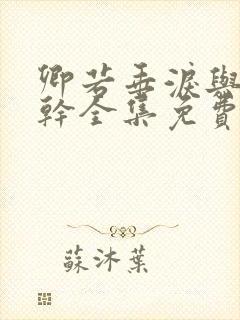 卿若垂淚與
幹全集免費
蘇沐葉